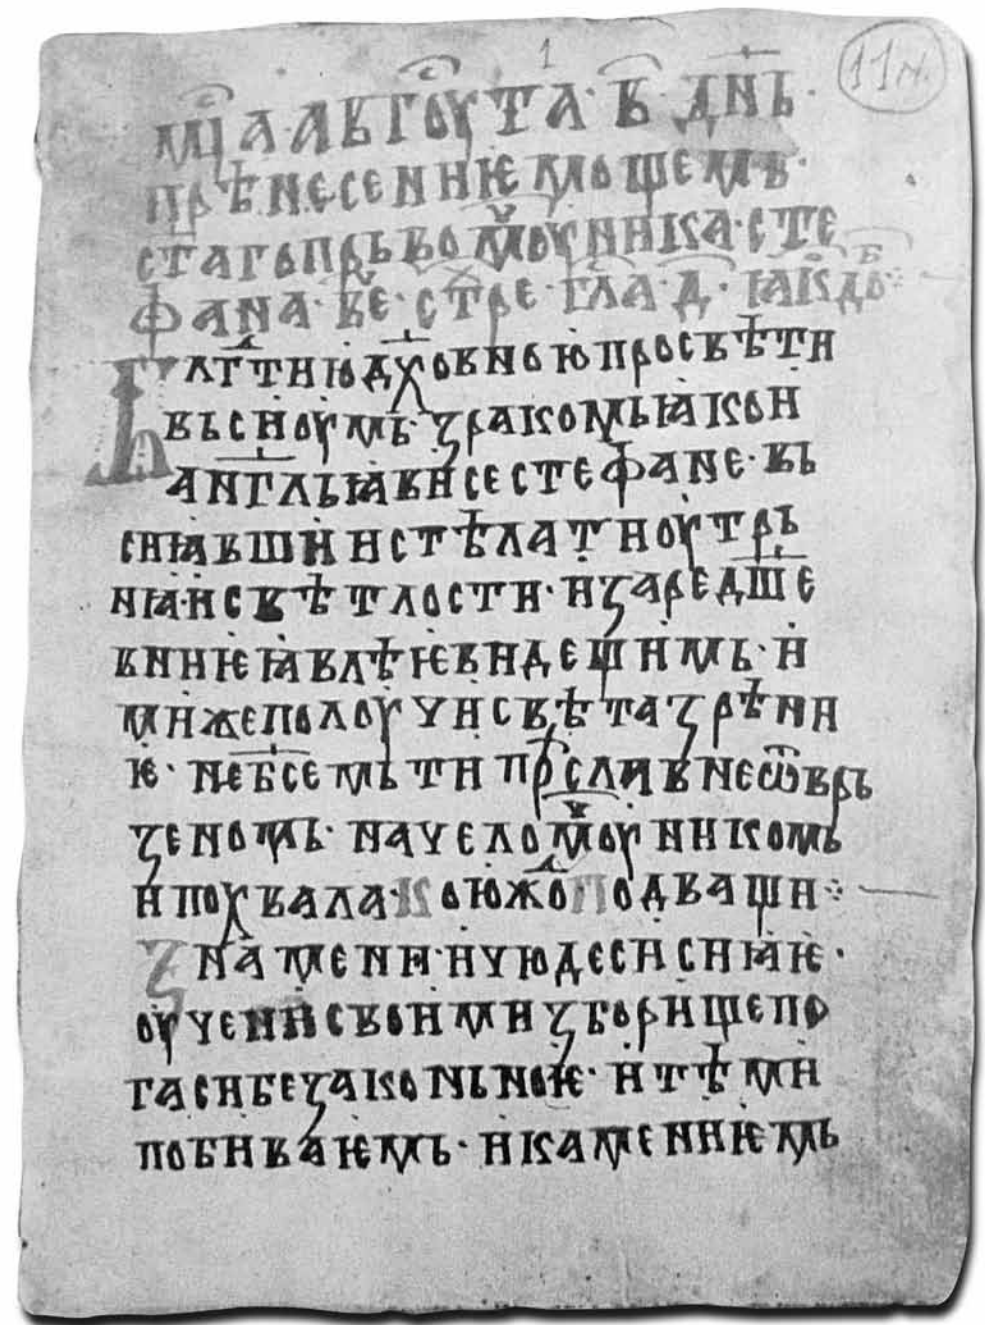 1
11 м.
мц҇а·авгоу҇та·в҃·дн҃ь·
прѣнесенни҆ѥ мощемь·
стагопрьвомоу҇ч҇ника·сте
фана·ве҇ч·стр҇хе·гла҇·д҃·ꙗкд҇об҇:
Блг҇дтиюдх҃овноюпросвѣти
вьсиоумь·зракомьꙗкои
анг҃льꙗвисестефане·вь
сиꙗвшиистѣлатноутрь
нꙗ·исвѣтлости·изаредш҃е
внииѥꙗвлѣѥвидещимь·и
мижеполоучисвѣтазрѣни
ѥ·неб҃семьтипр҇ѣсливнеѿврь
зеномь·начеломоу҇ч҇никомь
ипохвала·коюжд҇оподващи:
знамени·ичюдесисиꙗѥ·
оучениисвоимизборищепо
гасибезаконьноѥ·итѣми
побиваѥмь·икаменниѥмь